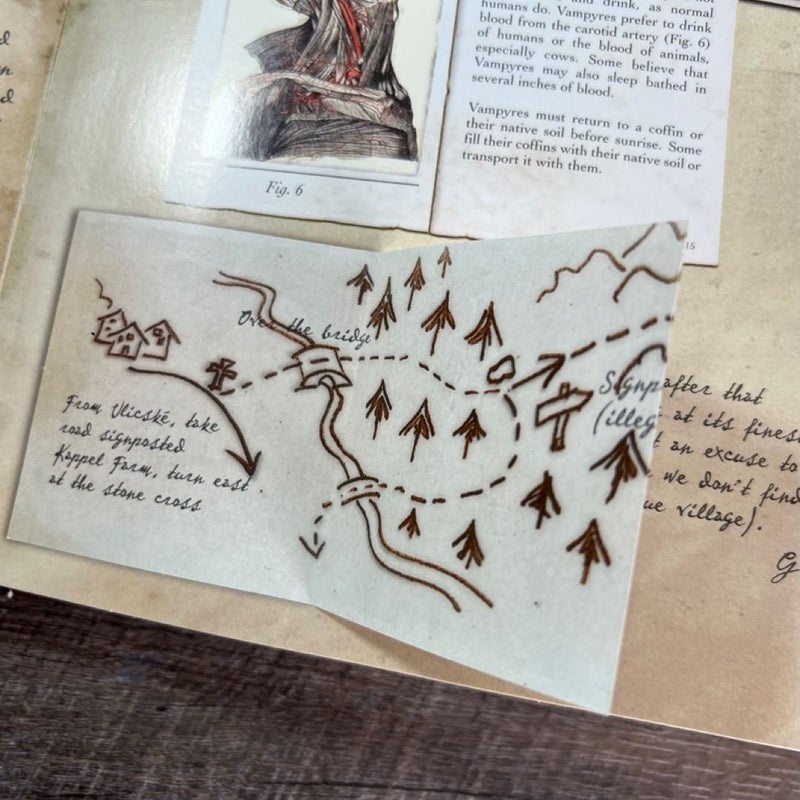 and drink, as normal
humans do. Vampyres prefer to drink
blood from the carotid artery (Fig. 6)
of humans or the blood of animals,
especially cows. Some believe that
Vampyres may also sleep bathed in
several inches of blood.
Vampyres must return to a coffin or
their native soil before sunrise. Some
fill their coffins with their native soil or
transport it with them.
15
Fig. 6
Over the bridge
From Vlicskê, take
road signposted
Kappel Farm, turn east
at the stone cross
after that
at its finest
an excuse to
we don't find
village).
G